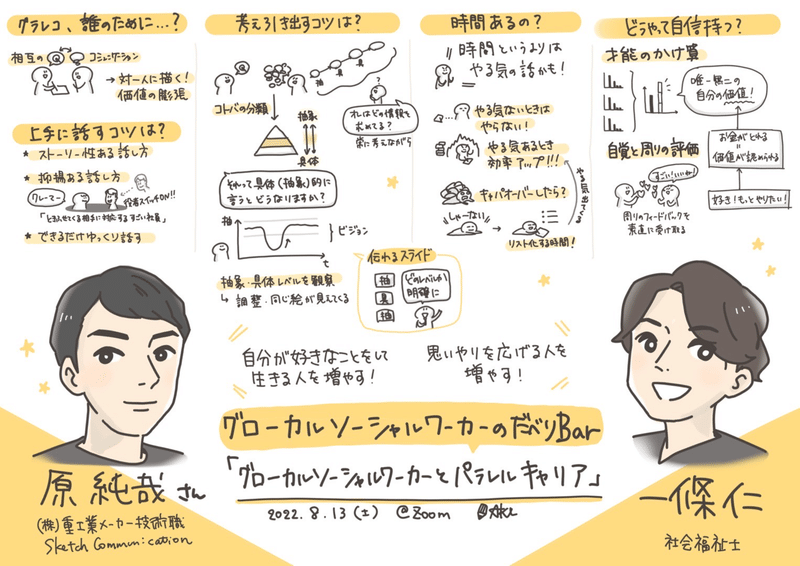 グラレコ、誰のために…?
相互の
コミュニケーション
→ 対一人に描く!
価値の膨張
上手に話すコツは?
★ ストーリー性ある話し方
★ 抑揚ある話し方
クレーマー
役者スイッチON!!
★ できるだけゆっくり話す
考え引き出すコツは?
抽
具
抽
具
コトバの分類
抽象
具体
オレはどの情報を
求めてる?
常に考えながら
それって具体(抽象)的に
言うとどうなりますか?
抽
具
t
ビジョン
抽象・具体レベルを観察
↳ 調整・同じ絵が見えてくる
伝わるスライド
抽
具
抽
どのレベルか
明確に
時間あるの?
時間というよりは
やる気の話かも!
やる気ないときは
やらない!
やる気あるとき
効率アップ!!!
キャパオーバーしたら?
しゃーない
リスト化する時間!
どうやって自信持つ?
才能のかけ算
唯一無二の
自分の価値!
自覚と周りの評価
すごい!いいね!
周りのフィードバックを
素直に受け取る
お金がとれる
=
価値が認められる
好き!もっとやりたい!
自分が好きなことをして
生きる人を増やす!
思いやりを広げる人を
増やす!
グローカルソーシャルワーカーのだべりBar
「グローカルソーシャルワーカーとパラレルキャリア」
2022.8.13(土) @Zoom
原 純哉さん
(株)重工業メーカー技術職
Sketch Communication
一條 仁
社会福祉士